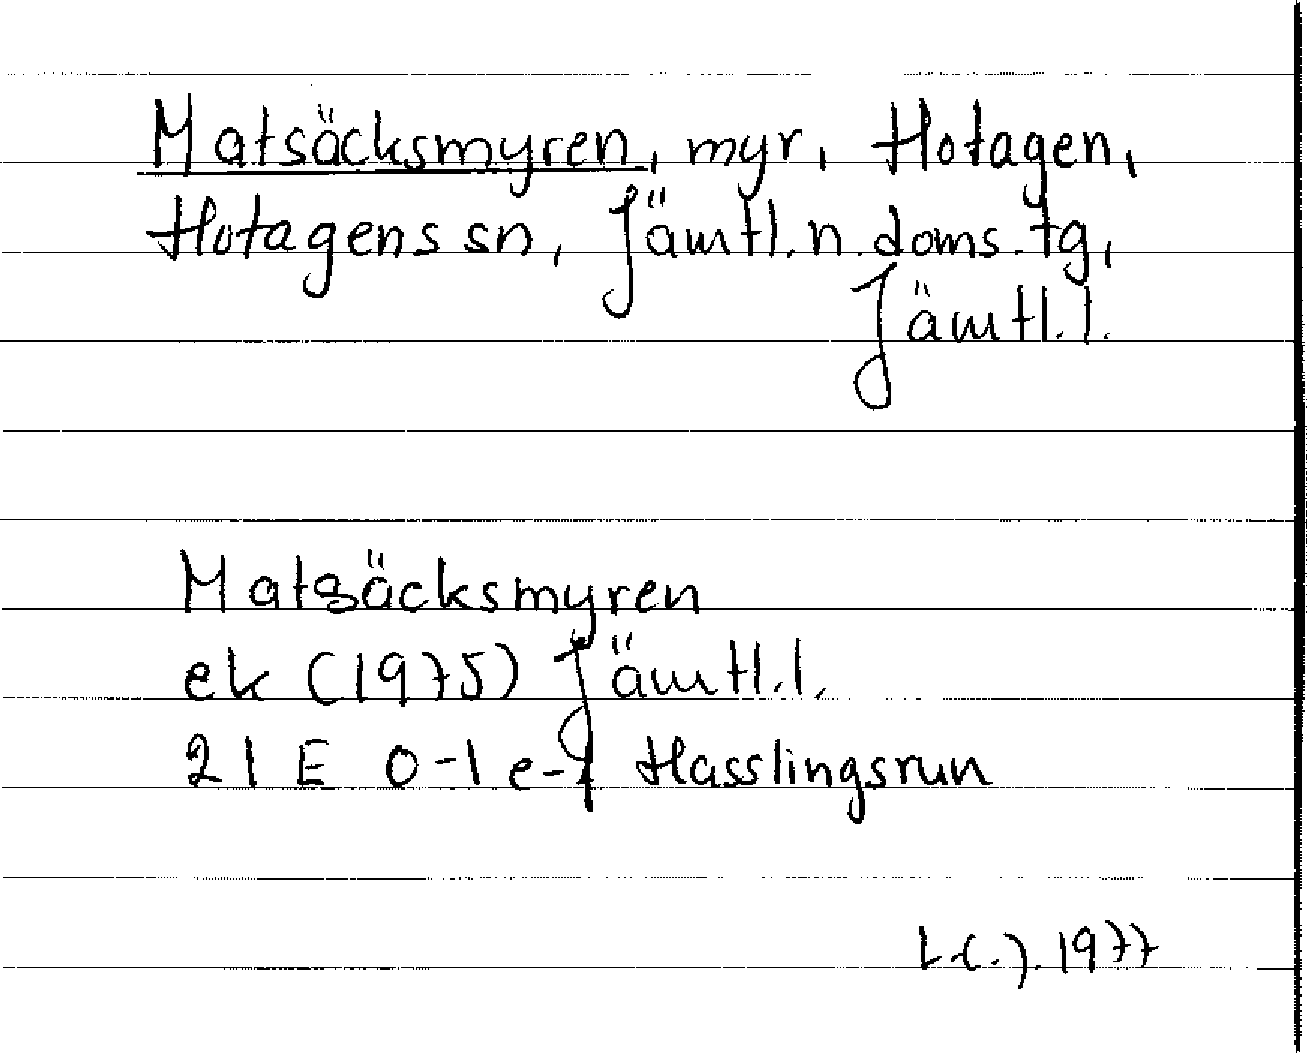 Matsäcksmyren, myr, Hotagen,
Hotagens sn, Jämtl. n. doms. tg,
Jämtl. l.
Matsäcksmyren
ek (1975) Jämtl. l.
21 E 0-1 e-f Hasslingsrun
1977